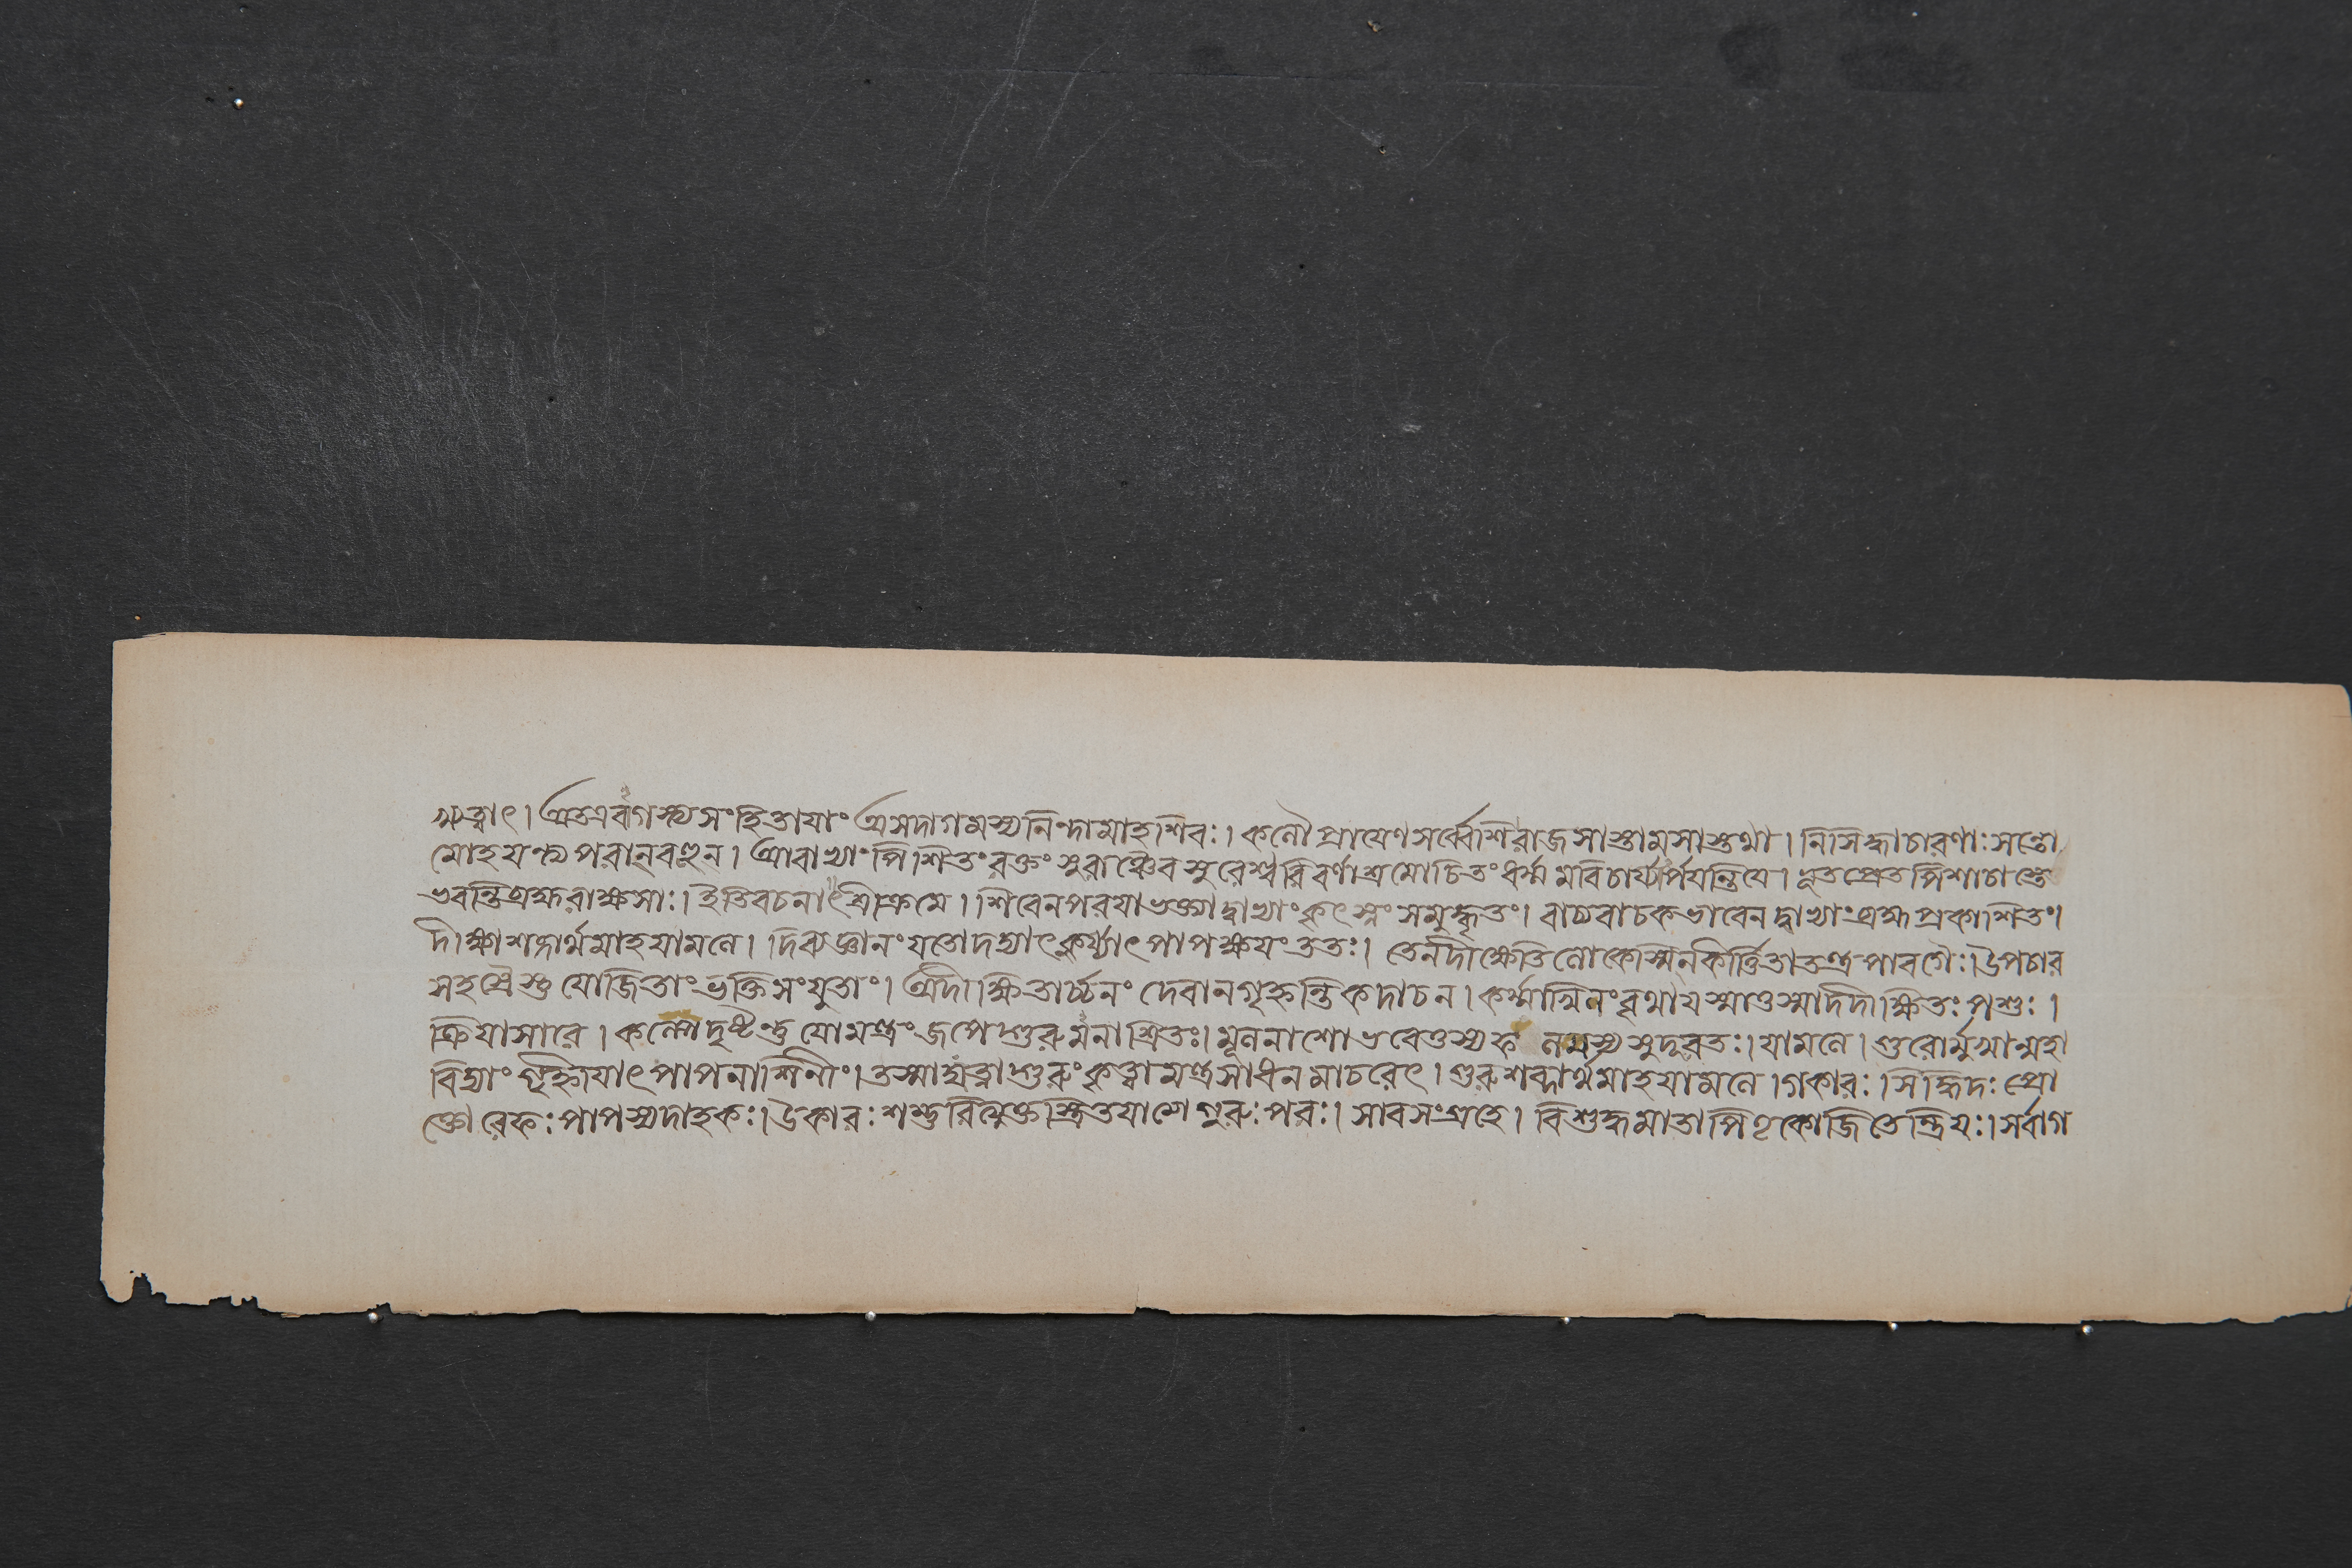 ঋত্বাৎ। অতএবাগস্ত্যসংহিতাযাং অসদাগমস্যনিন্দামাহশিবঃ। কলৌপ্রাযেণসর্ব্বেশিরাজসাস্তামসাস্তথা। নিসিদ্ধাচারণাঃসন্তো
মোহযন্ত্যপরান্‌বহুন। আবাভ্যাংপিশিতংরক্তংসুরাঞ্চৈবসুরেশ্বরিবর্ণাশ্রমোচিতংধর্ম্মমবিচার্য্যার্পযন্তিযে। ভূতপ্রেতপিশাচাস্তে
ভবন্তিব্রহ্মরাক্ষসাঃ। ইতিবচনাৎশ্রীক্রমে। শিবেনপরযাভক্ত্যাদ্বাভ্যাংকৃৎস্নংসমুদ্ধৃতং। বাচ্যবাচকভাবেনদ্বাভ্যাংব্রহ্মপ্রকাশিতং।
দীক্ষাশব্দার্থমাহযামলে। দিব্যজ্ঞানংযতোদদ্যাৎকুর্য্যাৎপাপক্ষযংততঃ। তেনদীক্ষেতিলোকেস্মিনকির্ত্তিতাতন্ত্রপারগৈঃ। উপচার
সহস্রৈস্তুযোজিতাংভক্তিসংযুতাং। অদীক্ষিতার্চ্চনং দেবানগৃহ্নন্তিকদাচন। কর্ম্মাখিলংবৃথাযস্মাত্তস্মাদদীক্ষিতঃ পশুঃ।
ক্রিযাসারে। কল্পেদৃষ্ট্বাতু যোমন্ত্রংজপেদ্গুরুমনাশ্রিতঃ। মূলনাশোভবেত্তস্যফ লমস্যসুদূরতঃ। যামলে। গুরোর্মুখান্মহা
বিদ্যাংগৃহ্নিযাৎপাপনাশিনীং। তস্মাদ্যত্নাদ্গুরুংকৃত্বামন্ত্রসাধনমাচরেৎ। গুরুশব্দার্থমাহযামলে। গকারঃ। সিদ্ধিদঃ প্রো
ক্তোরেফঃপাপস্যদাহকঃ। উকারঃশম্ভুরিত্যুক্তস্ত্রিতযাত্মেগুরুঃপরঃ। সারসংগ্রহে। বিশুদ্ধমাতাপিতৃকোজিতেন্দ্রিযঃ। সর্বাগ